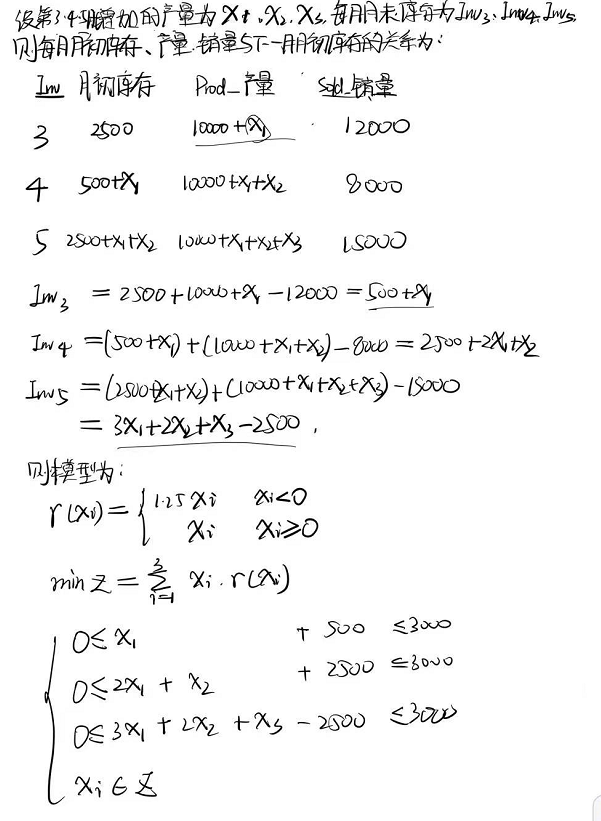 设第3.4.5月增加的产量为 X₁、X₂、X₃, 每月月末库存为Inv₃、Inv₄、Inv₅
则每月月初库存、产量、销量与下一月月初库存的关系为:
Inv 月初库存 Prod_产量 Sold_销量
3 2500 10000+(X₁) 12000
4 500+X₁ 10000+X₁+X₂ 8000
5 2500+X₁+X₂ 10000+X₁+X₂+X₃ 15000
Inv₃ = 2500+10000+X₁-12000 = 500+X₁
Inv₄ = (500+X₁)+(10000+X₁+X₂)-8000 = 2500+2X₁+X₂
Inv₅ = (2500+2X₁+X₂)+(10000+X₁+X₂+X₃)-15000
= 3X₁+2X₂+X₃-2500,
则模型为:
r(Xi) = { 1.25Xi Xi<0
Xi Xi≥0
min Z = ∑³ᵢ₌₁ Xi · r(Xi)
0≤X₁ + 500 ≤3000
0≤2X₁ + X₂ + 2500 ≤3000
0≤3X₁ + 2X₂ + X₃ - 2500 ≤3000
Xi ∈ Z